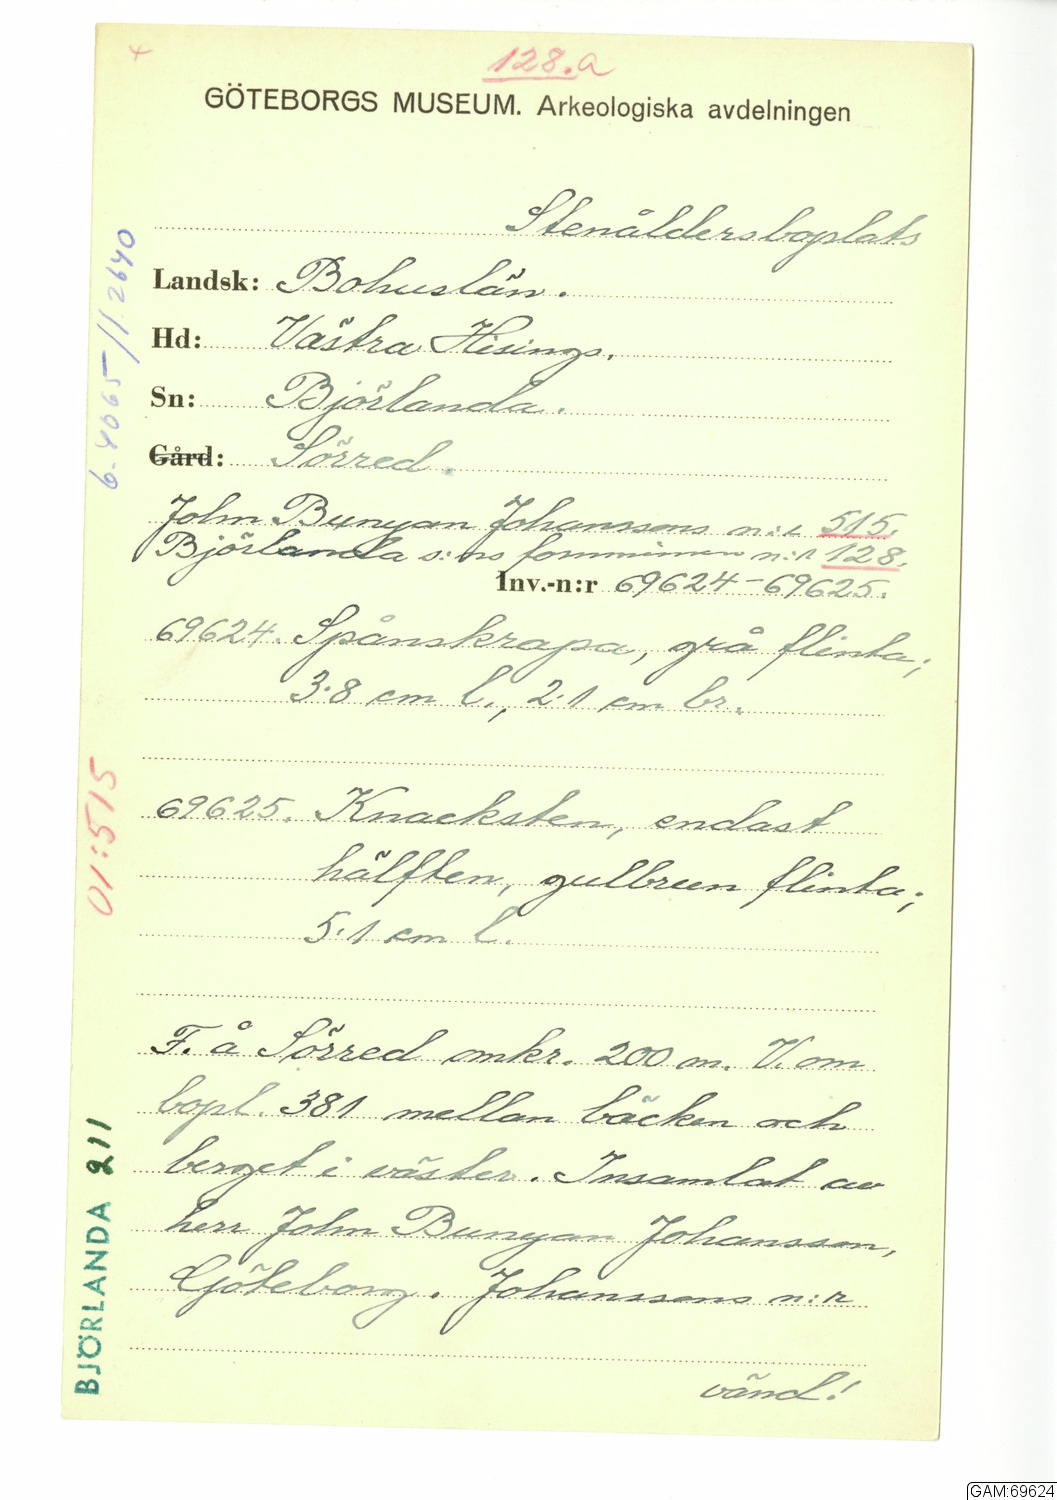 128.a
GÖTEBORGS MUSEUM. Arkeologiska avdelningen
Stenåldersboplats
Landsk: Bohuslän.
Hd: Västra Hisings.
Sn: Björlanda.
Gård: Sörred.
John Bunyan Johanssons n:r 515.
Björlanda s:ns fornminnen n:r 128.
Inv.-n:r 69624-69625.
69624. Spånskrapa, grå flinta;
3.8 cm l., 2.1 cm br.
69625. Knacksten, endast
hälften, gulbrun flinta;
5.1 cm l.
F. å Sörred omkr. 200 m. V. om
bopl. 381 mellan bäcken och
berget i väster. Insamlat av
herr John Bunyan Johansson,
Göteborg. Johanssons n:r
vänd!
6-4065//.2640
01:515
BJÖRLANDA 211
GAM:69624